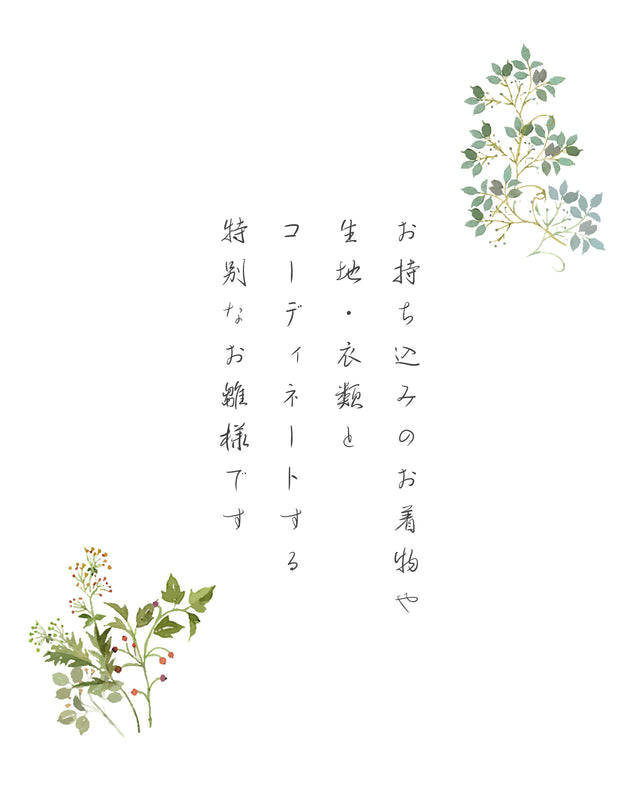 お持ち込みのお着物や
生地・衣類と
コーディネートする
特別なお雛様です